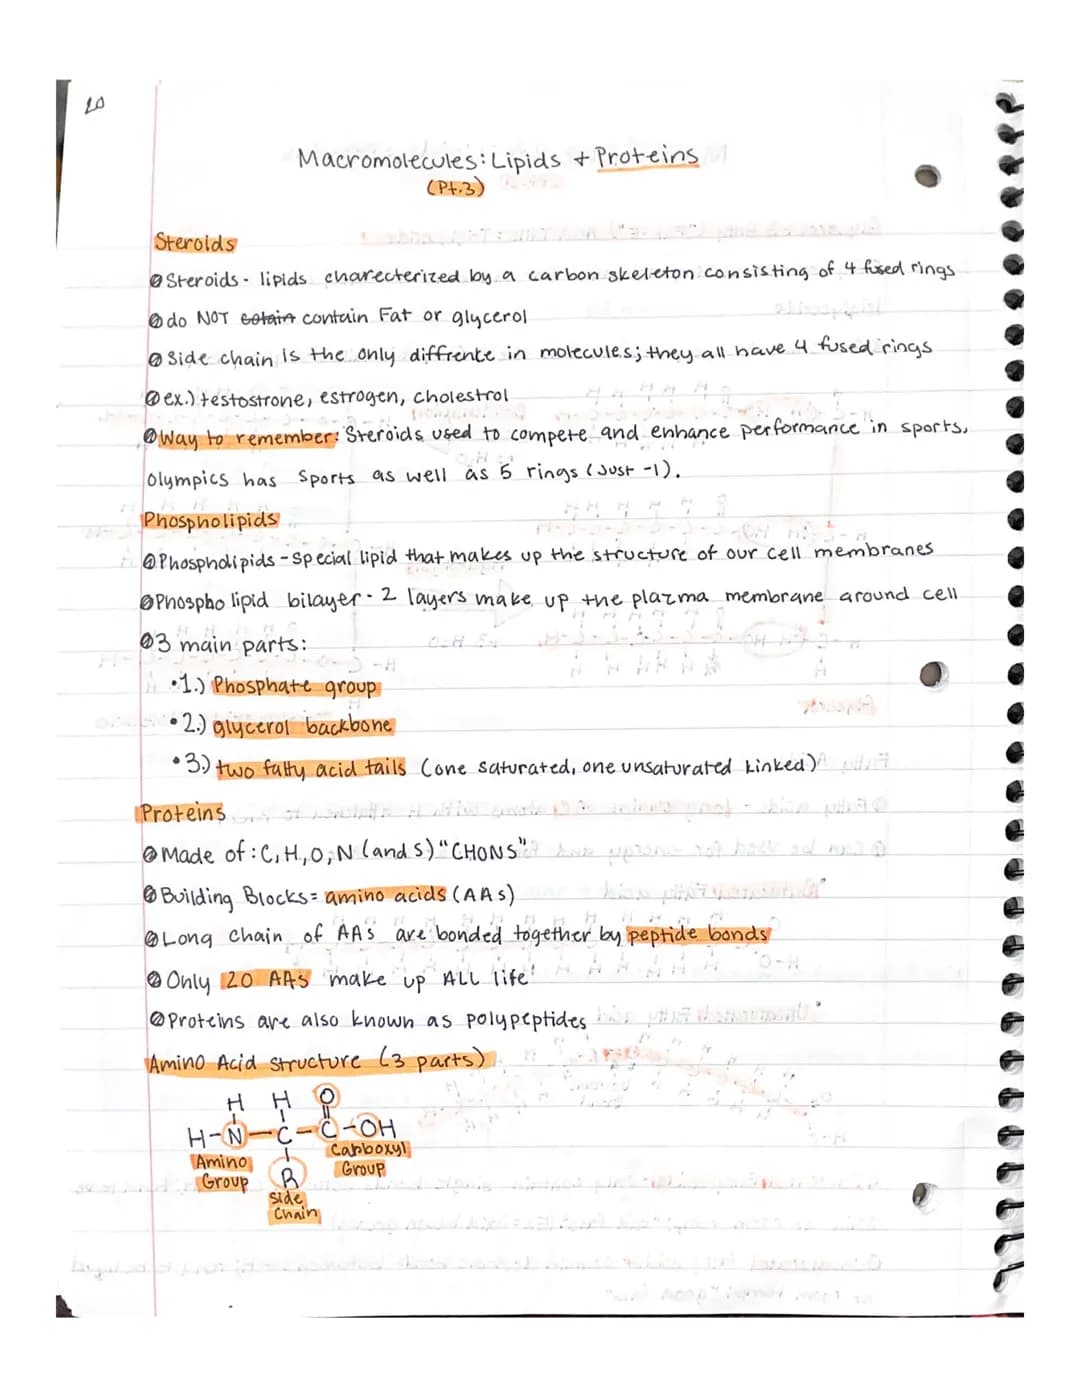 20
Macromolecules: Lipids + Proteins
(Pt.3)
Steroids
Steroids - lipids charecterized by a carbon skeleton consisting of 4 fused rings
do NOT cotain contain Fat or glycerol
Side chain is the only diffrente in molecules; they all have 4 fused rings
ex.) testostrone, estrogen, cholestrol
Way to remember: Steroids used to compete and enhance performance in sports,
Olympics has sports as well as 5 rings (Just -1).
Phospholipids
Phospholipids - Special lipid that makes up the structure of our cell membranes
Phospho lipid bilayer - 2 layers make up the plazma membrane around cell
3 main parts:
•1.) Phosphate group
•2.) glycerol backbone
•3.) two fatty acid tails (one saturated, one unsaturated Linked)
Proteins
Made of: C, H, O, N (and S) "CHONS"
Building Blocks = amino acids (AAs)
Long chain of AAs are bonded together by peptide bonds
Only 20 AAs make up ALL life!
Proteins are also known as polypeptides
Amino Acid structure (3 parts)
H H O
H-N-C-C-OH
Amino Carboxyl
Group R Group
Side
Chain